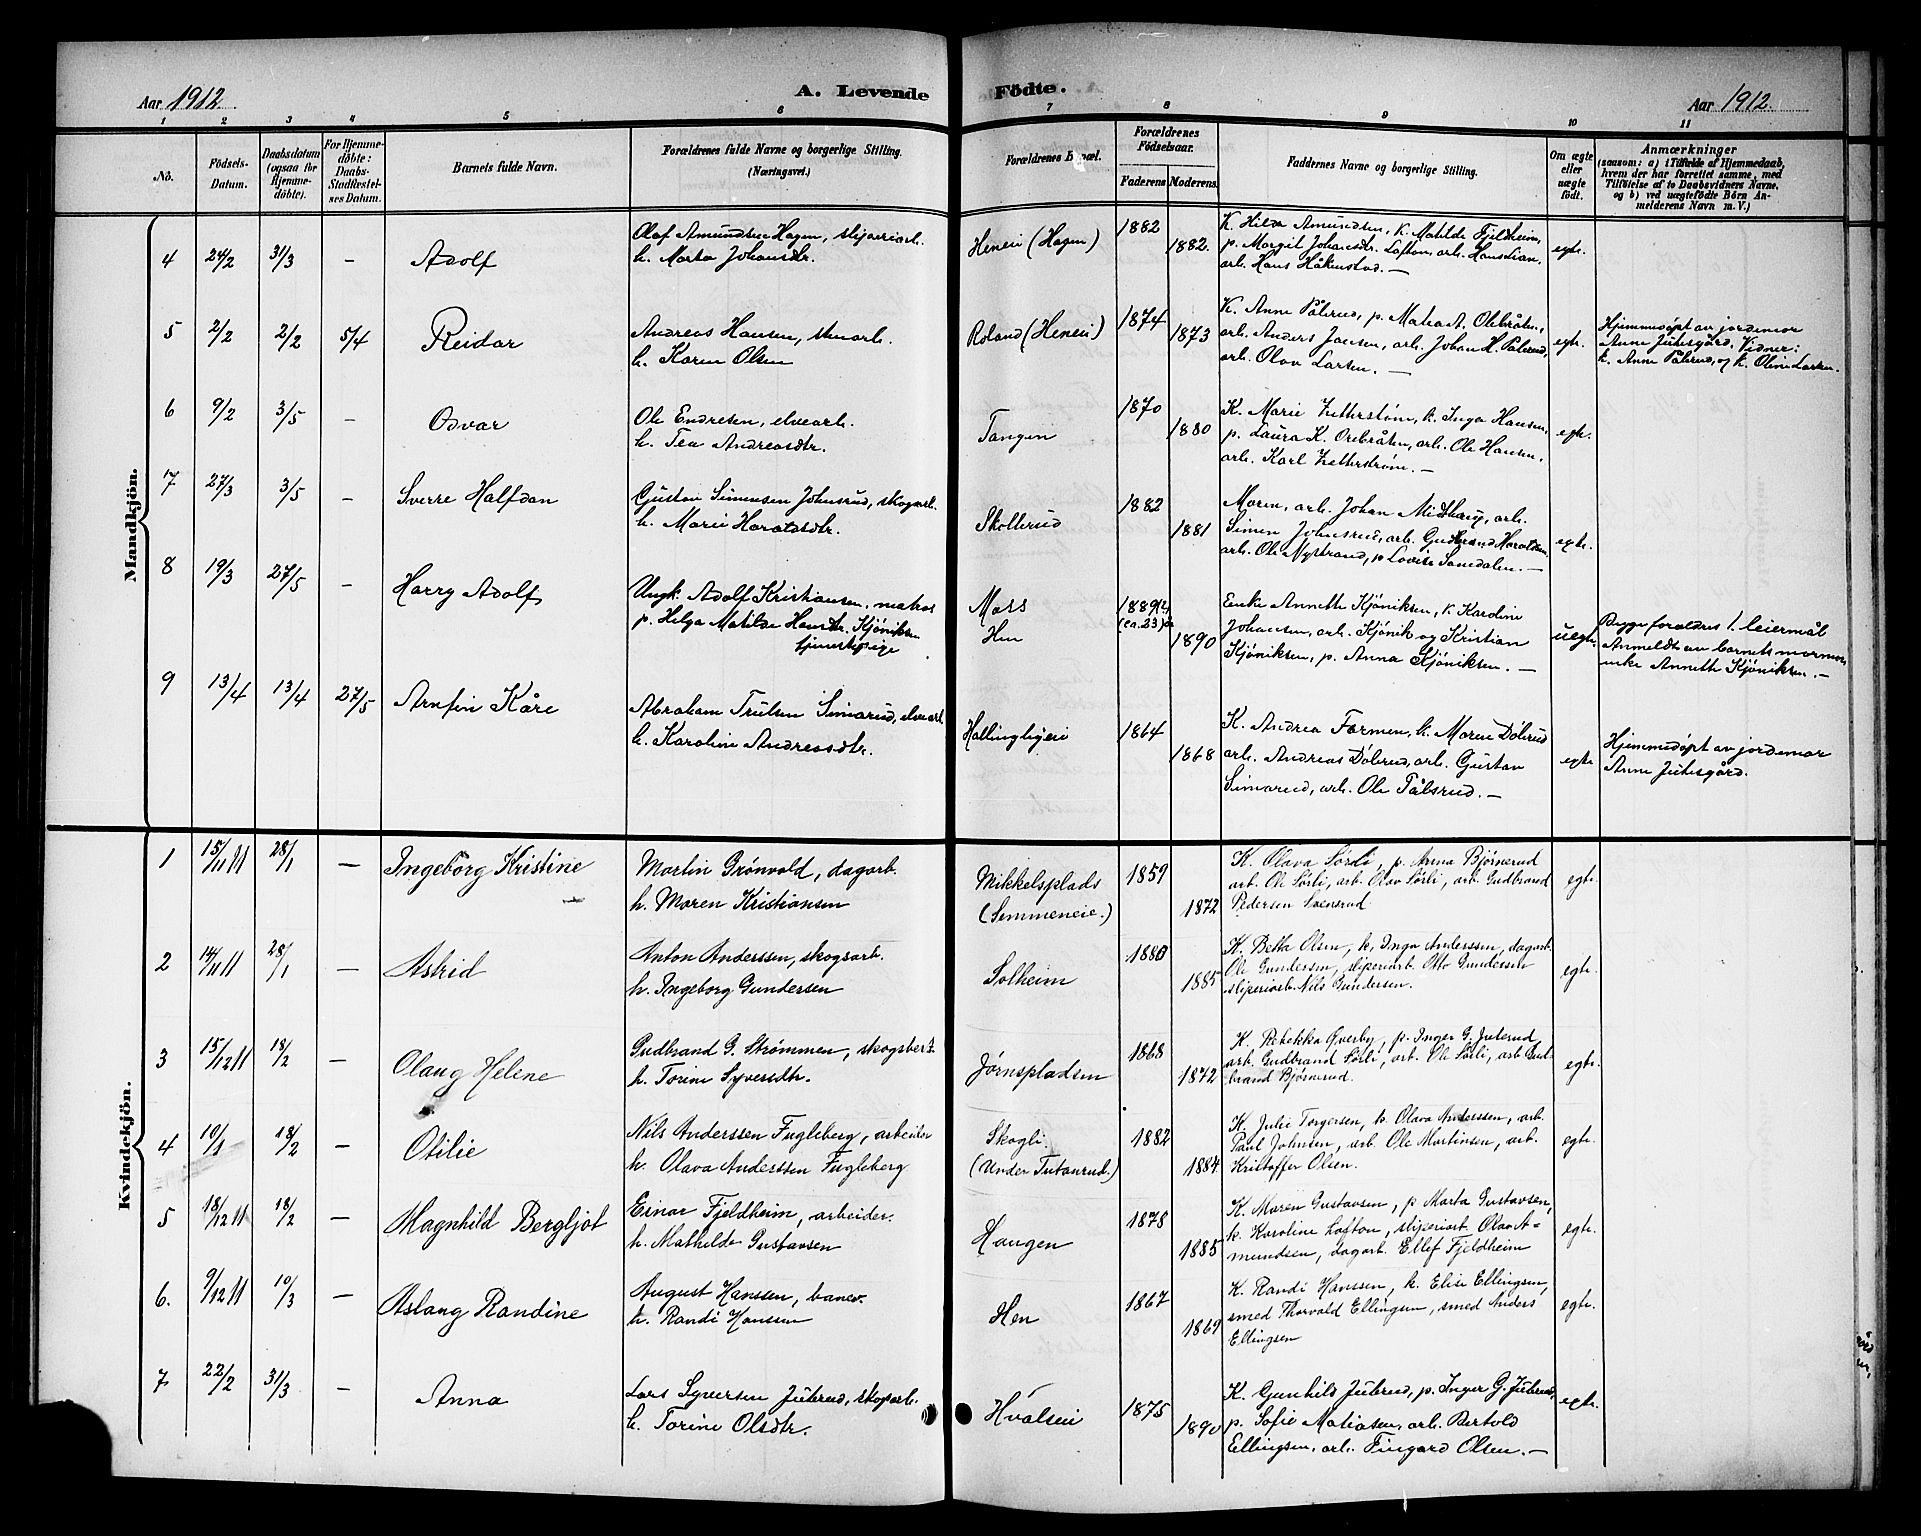 Aar 1912.
A. Levende Födte.
Aar 1912.
1 2 3 4 5 6 7 8 9 10 11
No.
Födsels-Datum.
Daabsdatum (ogsaa for Hjemme-døbte).
For Hjemme-døbte: Daabs-Stadfæstel-ses Datum.
Barnets fulde Navn.
Forældrenes fulde Navne og borgerlige Stilling. (Næringsvei.)
Forældrenes Bopæl.
Forældrenes Födselsaar.
Faderens Moderens.
Faddernes Navne og borgerlige Stilling.
Om ægte eller uægte født.
Anmærkninger
(saasom: a) i Tilfælde af Hjemmedaab,
hvem der har forrettet samme, med
Tilføielse af to Daabsvidners Navne,
og b) ved uægtefødte Börn An-
melderens Navn m. V.)
Mandkjön.
4 24/2 31/3 - Adolf
Olaf Amundsen Hagen, sliperiarb.
h. Marta Johansdtr.
Heneie (Hagen) 1882 1882.
K. Hilda Amundsen, k. Matilde Fjeldheim,
p. Margit Johansdtr. Lofton, arb. Hans Lian,
arb. Hans Håkenstad. —
egte.
5 2/2 2/2 5/4 Reidar
Andreas Hansen, stenarb.
h. Karen Olsen
Roland (Heneie) 1874 1873
K. Anne Pålerud, p. Matea A. Olebråten,
arb. Anders Jansen, arb. Johan H. Pålerud,
arb. Olav Larsen. —
egte.
Hjemmedøpt av jordemor
Anne Juhsgård. Vidner:
k. Anne Pålerud, og k. Oline Larsen.
6 9/2 3/5 - Odvar
Ole Endresen, elvearb.
h. Tea Andreasdtr.
Tangen 1870 1880
K. Marie Zetterstrøm, k. Inga Hansen,
p. Laura K. Orebråten, arb. Ole Hansen,
arb. Karl Zetterstrøm. —
egte.
7 27/3 3/5 - Sverre Halfdan
Gustav Simensen Johnsrud, skogarb.
h. Marie Haraldsdtr.
Skollerud 1882 1881
Moren, arb. Johan Midthaug, arb.
Simen Johnsrud, arb. Gudbrand Haraldsen,
arb. Ole Nystrand, p. Lovise Sandalen. —
egte.
8 19/3 27/5 - Harry Adolf
Ungk. Adolf Kristiansen, matros
p. Helga Matilde Hansdtr. Kjöniksen
tjenestepige
Moss
Hen
1889 (ca. 23) 1890
Enke Annette Kjöniksen, k. Karoline
Johansen, arb. Kjönik og Kristian
Kjöniksen, p. Anna Kjöniksen. —
uegte.
Begge foreldres 1. leiermål
Anmeldt av barnets mormor,
enke Annette Kjöniksen. —
9 13/4 13/4 27/5 Arnfin Kåre
Abraham Trulsen Simarud, elvearb.
h. Karoline Andreasdtr.
Hallingbyeie 1864 1868
K. Andrea Formen, k. Maren Dölerud
arb. Andreas Dölerud, arb. Gustav
Simarud, arb. Ole Tålsrud. —
egte
Hjemmedøpt av jordemor
Anne Juhsgård.
Kvindekjön.
1 15/11 11 28/1 — Ingeborg Kristine
Martin Grönvold, dagarb.
h. Maren Kristiansen
Mikkelsplads
(Semmeneie.)
1859 1872
K. Olava Sørli, p. Anna Bjørnerud
arb. Ole Sørli, arb. Olav Sørli, arb. Gudbrand
Pedersen Svensrud
egte.
2 14/11 11 28/1 — Astrid
Anton Anderssen, skogsarb.
h. Ingeborg Gundersen
Solheim 1880 1885
K. Betta Olsen, k. Inga Anderssen, dagarb.
Ole Gundersen, sliperiarb. Otto Gundersen
sliperiarb. Nils Gundersen.
egte.
3 15/12 11 18/2 — Olaug Helene
Gudbrand G. Strømmen, skogsbet.
h. Torine Syversdtr.
Jørnspladsen 1868 1872
K. Rebekka Øverby, p. Inger G. Julerud,
arb. Gudbrand Sørli, arb. Ole Sørli, arb. Gud-
brand Bjørnerud.
egte.
4 10/1 18/2 — Otilie
Nils Anderssen Fugleberg, arbeider
h. Olava Anderssen Fugleberg
Skogli.
(Under Tutanrud.)
1882 1884
K. Julie Torgersen, k. Olava Anderssen, arb.
Paul Johnsen, arb. Ole Martinsen, arb.
Kristoffer Olsen.
egte.
5 18/12 11 18/2 — Magnhild Bergljot
Einar Fjeldheim, arbeider.
h. Mathilde Gustavsen
Haugen 1878 1885
K. Maren Gustavsen, p. Marta Gustavsen,
k. Karoline Lofton, sliperiarb. Olav A-
mundsen, dagarb. Ellef Fjeldheim
egte.
6. 9/12 11 10/3 — Aslaug Randine
August Hanssen, banev.
h. Randi Hanssen
Hen 1867 1869
K. Randi Hanssen, k. Elise Ellingsen,
smed Thorvald Ellingsen, smed Anders
Ellingsen
egte.
7 22/2 31/3 - Anna
Lars Syversen Julerud, skogarb.
h. Torine Olsdtr.
Hvalseie 1875 1890
K. Gunhild Julerud, p. Inger G. Julerud,
p. Sofie Matiasen, arb. Bertold
Ellingsen, arb. Fingard Olsen. —
egte.